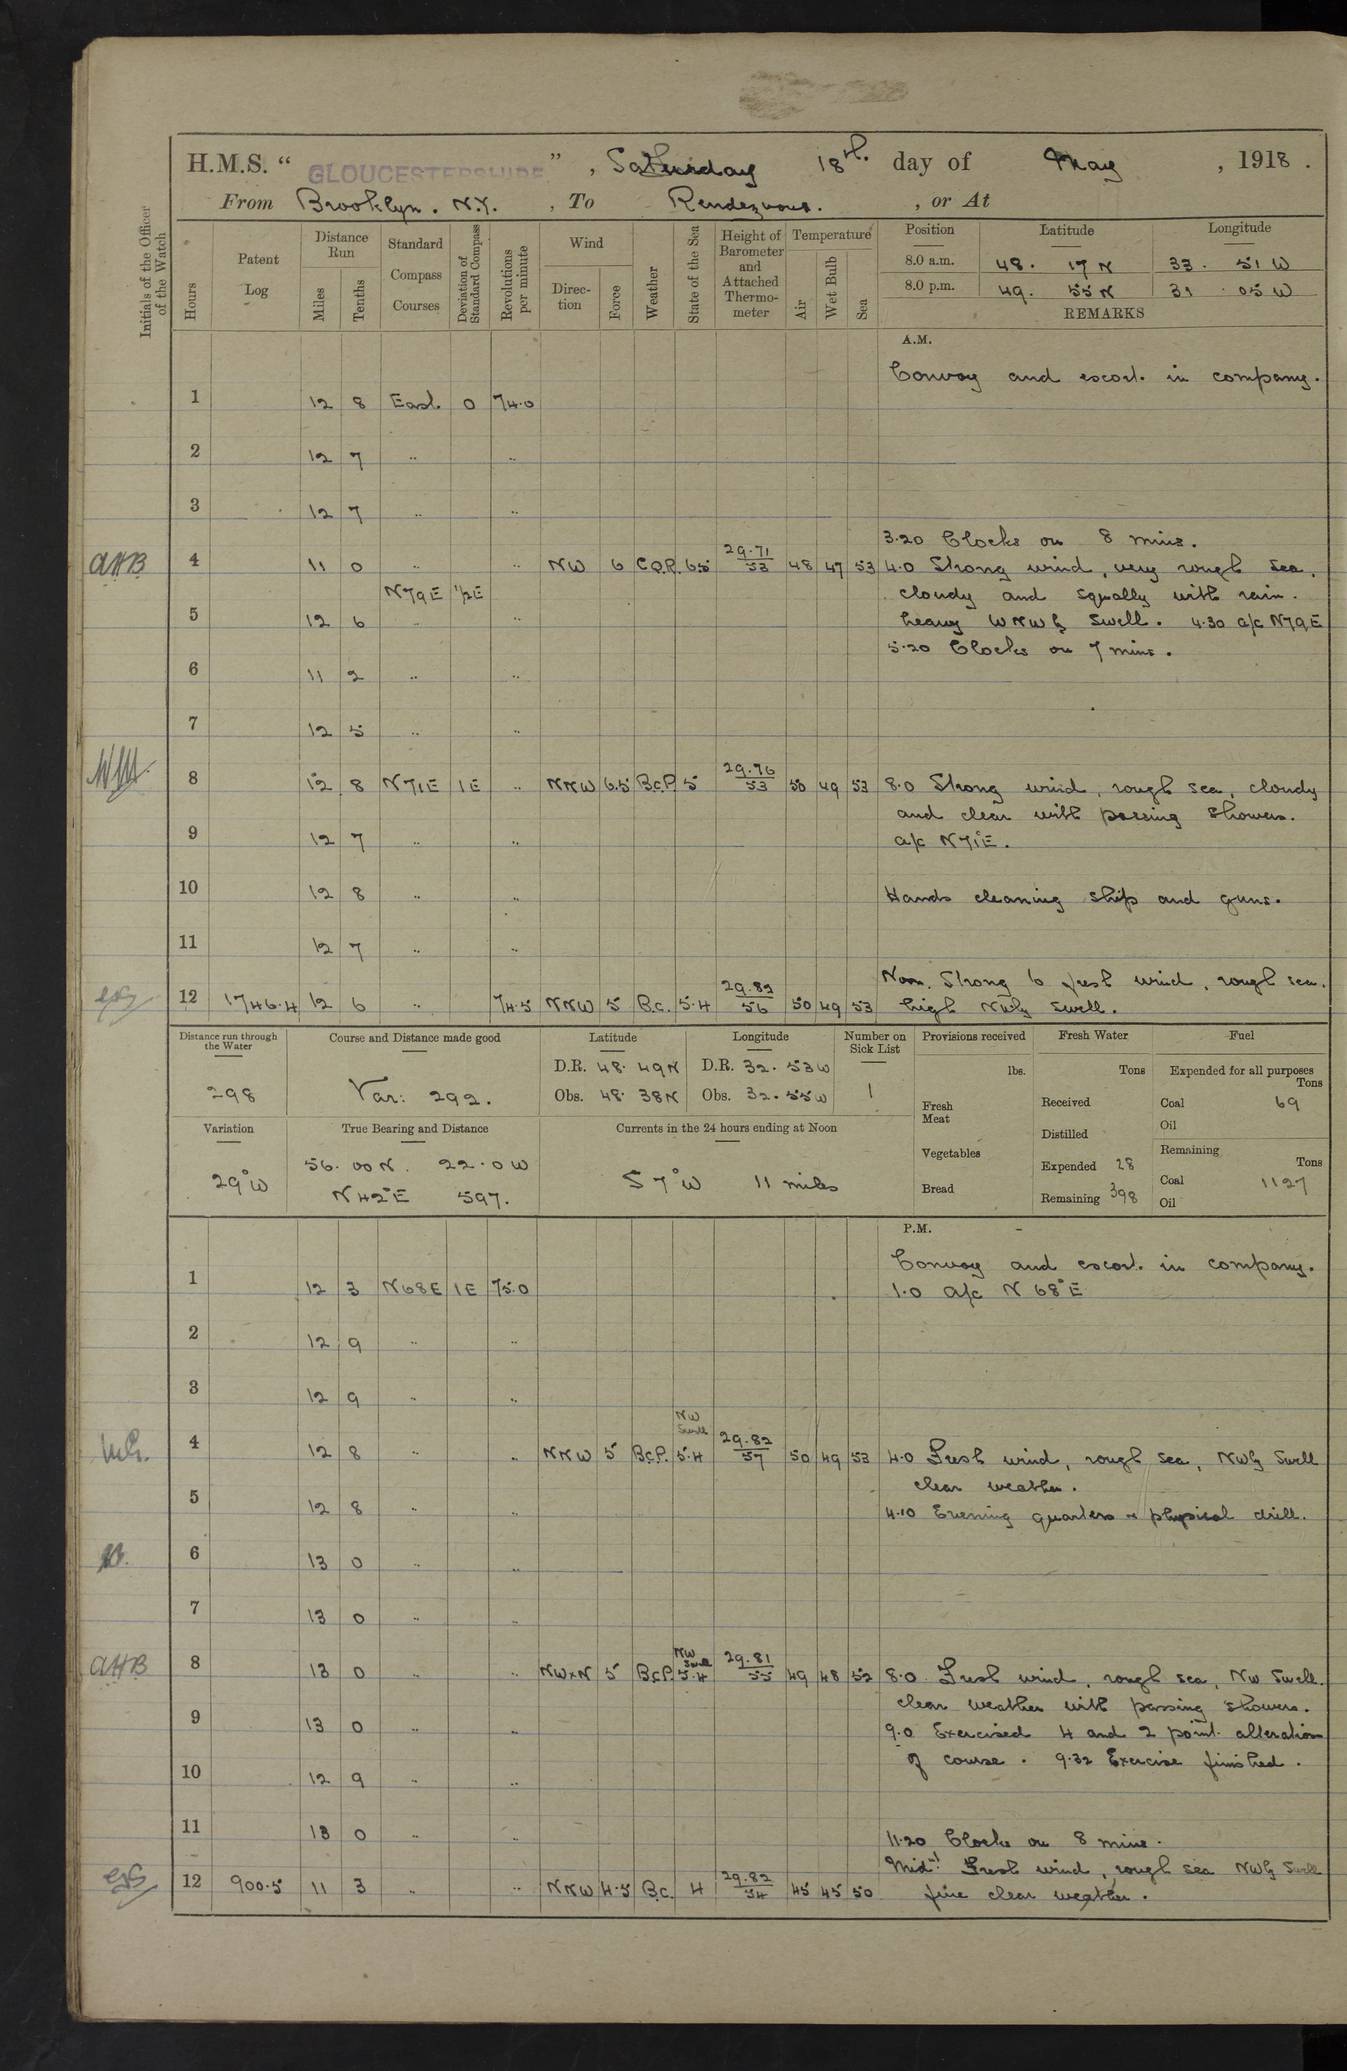 H.M.S. " GLOUCESTERSHIRE " , Saturday 18th. day of May , 1918 .
From Brooklyn. N.Y. , To Rendezvous. , or At
Initials of the Officer of the Watch
Hours Patent Log Distance Run Miles Tenths Standard Compass Courses Deviation of Standard Compass Revolutions per minute Wind Direction Force Weather State of the Sea Height of Barometer and Attached Thermometer Temperature Air Wet Bulb Sea Position Latitude Longitude
8.0 a.m. 48. 17 N 33. 51 W
8.0 p.m. 49. 55 N 31. 05 W
REMARKS
A.M.
Convoy and escort. in company.
1 12 8 East. 0 74.0
2 12 7 .. ..
3 12 7 .. ..
3.20 Clocks on 8 mins.
AHB 4 11 0 .. .. NW 6 C.Q.R. 65 29.71/53 48 47 53 4.0 Strong wind, very rough sea,
N79E ½E cloudy and squally with rain.
5 12 6 .. .. heavy WNWly Swell. 4.30 a/c N79E
5.20 Clocks on 7 mins.
6 11 2 .. ..
7 12 5 .. ..
8 12 8 N71E 1E .. NNW 6.5 B.C.P. 5 29.76/53 50 49 53 8.0 Strong wind, rough sea, cloudy
and clear with passing showers.
9 12 7 .. .. a/c N71°E.
10 12 8 .. .. Hands cleaning ship and guns.
11 12 7 .. ..
Noon. Strong to fresh wind, rough sea.
12 1746.4 12 6 .. 74.5 NNW 5 B.C. 5.4 29.82/56 50 49 53 high NWly Swell.
Distance run through the Water Course and Distance made good Latitude Longitude Number on Sick List Provisions received Fresh Water Fuel
298 Var: 292. D.R. 48. 49N D.R. 32. 53W 1 lbs. Tons Expended for all purposes Tons
Obs. 48. 38N Obs. 32. 55W Fresh Meat Received Coal 69
Distilled Oil
Variation True Bearing and Distance Currents in the 24 hours ending at Noon Vegetables Remaining Tons
29°W 56. 00 N. 22. 0 W S 7°W 11 miles Expended 28 Coal 1127
N 42°E 597. Bread Remaining 398 Oil
P.M.
Convoy and escort. in company.
1 12 3 N68E 1E 75.0 1.0 a/c N 68°E
2 12 9 .. ..
3 12 9 .. ..
NW Swell
4 12 8 .. NNW 5 B.C.P. 5.4 29.82/57 50 49 53 4.0 Fresh wind, rough sea, NWly Swell
clear weather.
5 12 8 .. .. 4.10 Evening quarters & physical drill.
6 13 0 .. ..
7 13 0 .. ..
NW Swell
AHB 8 13 0 .. NWxN 5 B.C.P. 5.4 29.81/55 49 48 52 8.0 Fresh wind, rough sea, NW Swell.
clear weather with passing showers.
9 13 0 .. .. 9.0 Exercised 4 and 2 point. alteration
of course. 9.32 Exercise finished.
10 12 9 .. ..
11 13 0 .. .. 11.20 Clocks on 8 mins.
Midt. Fresh wind, rough sea NWly Swell
12 900.5 11 3 .. .. NNW 4.5 B.C. 4 29.82/54 45 45 50 fine clear weather.